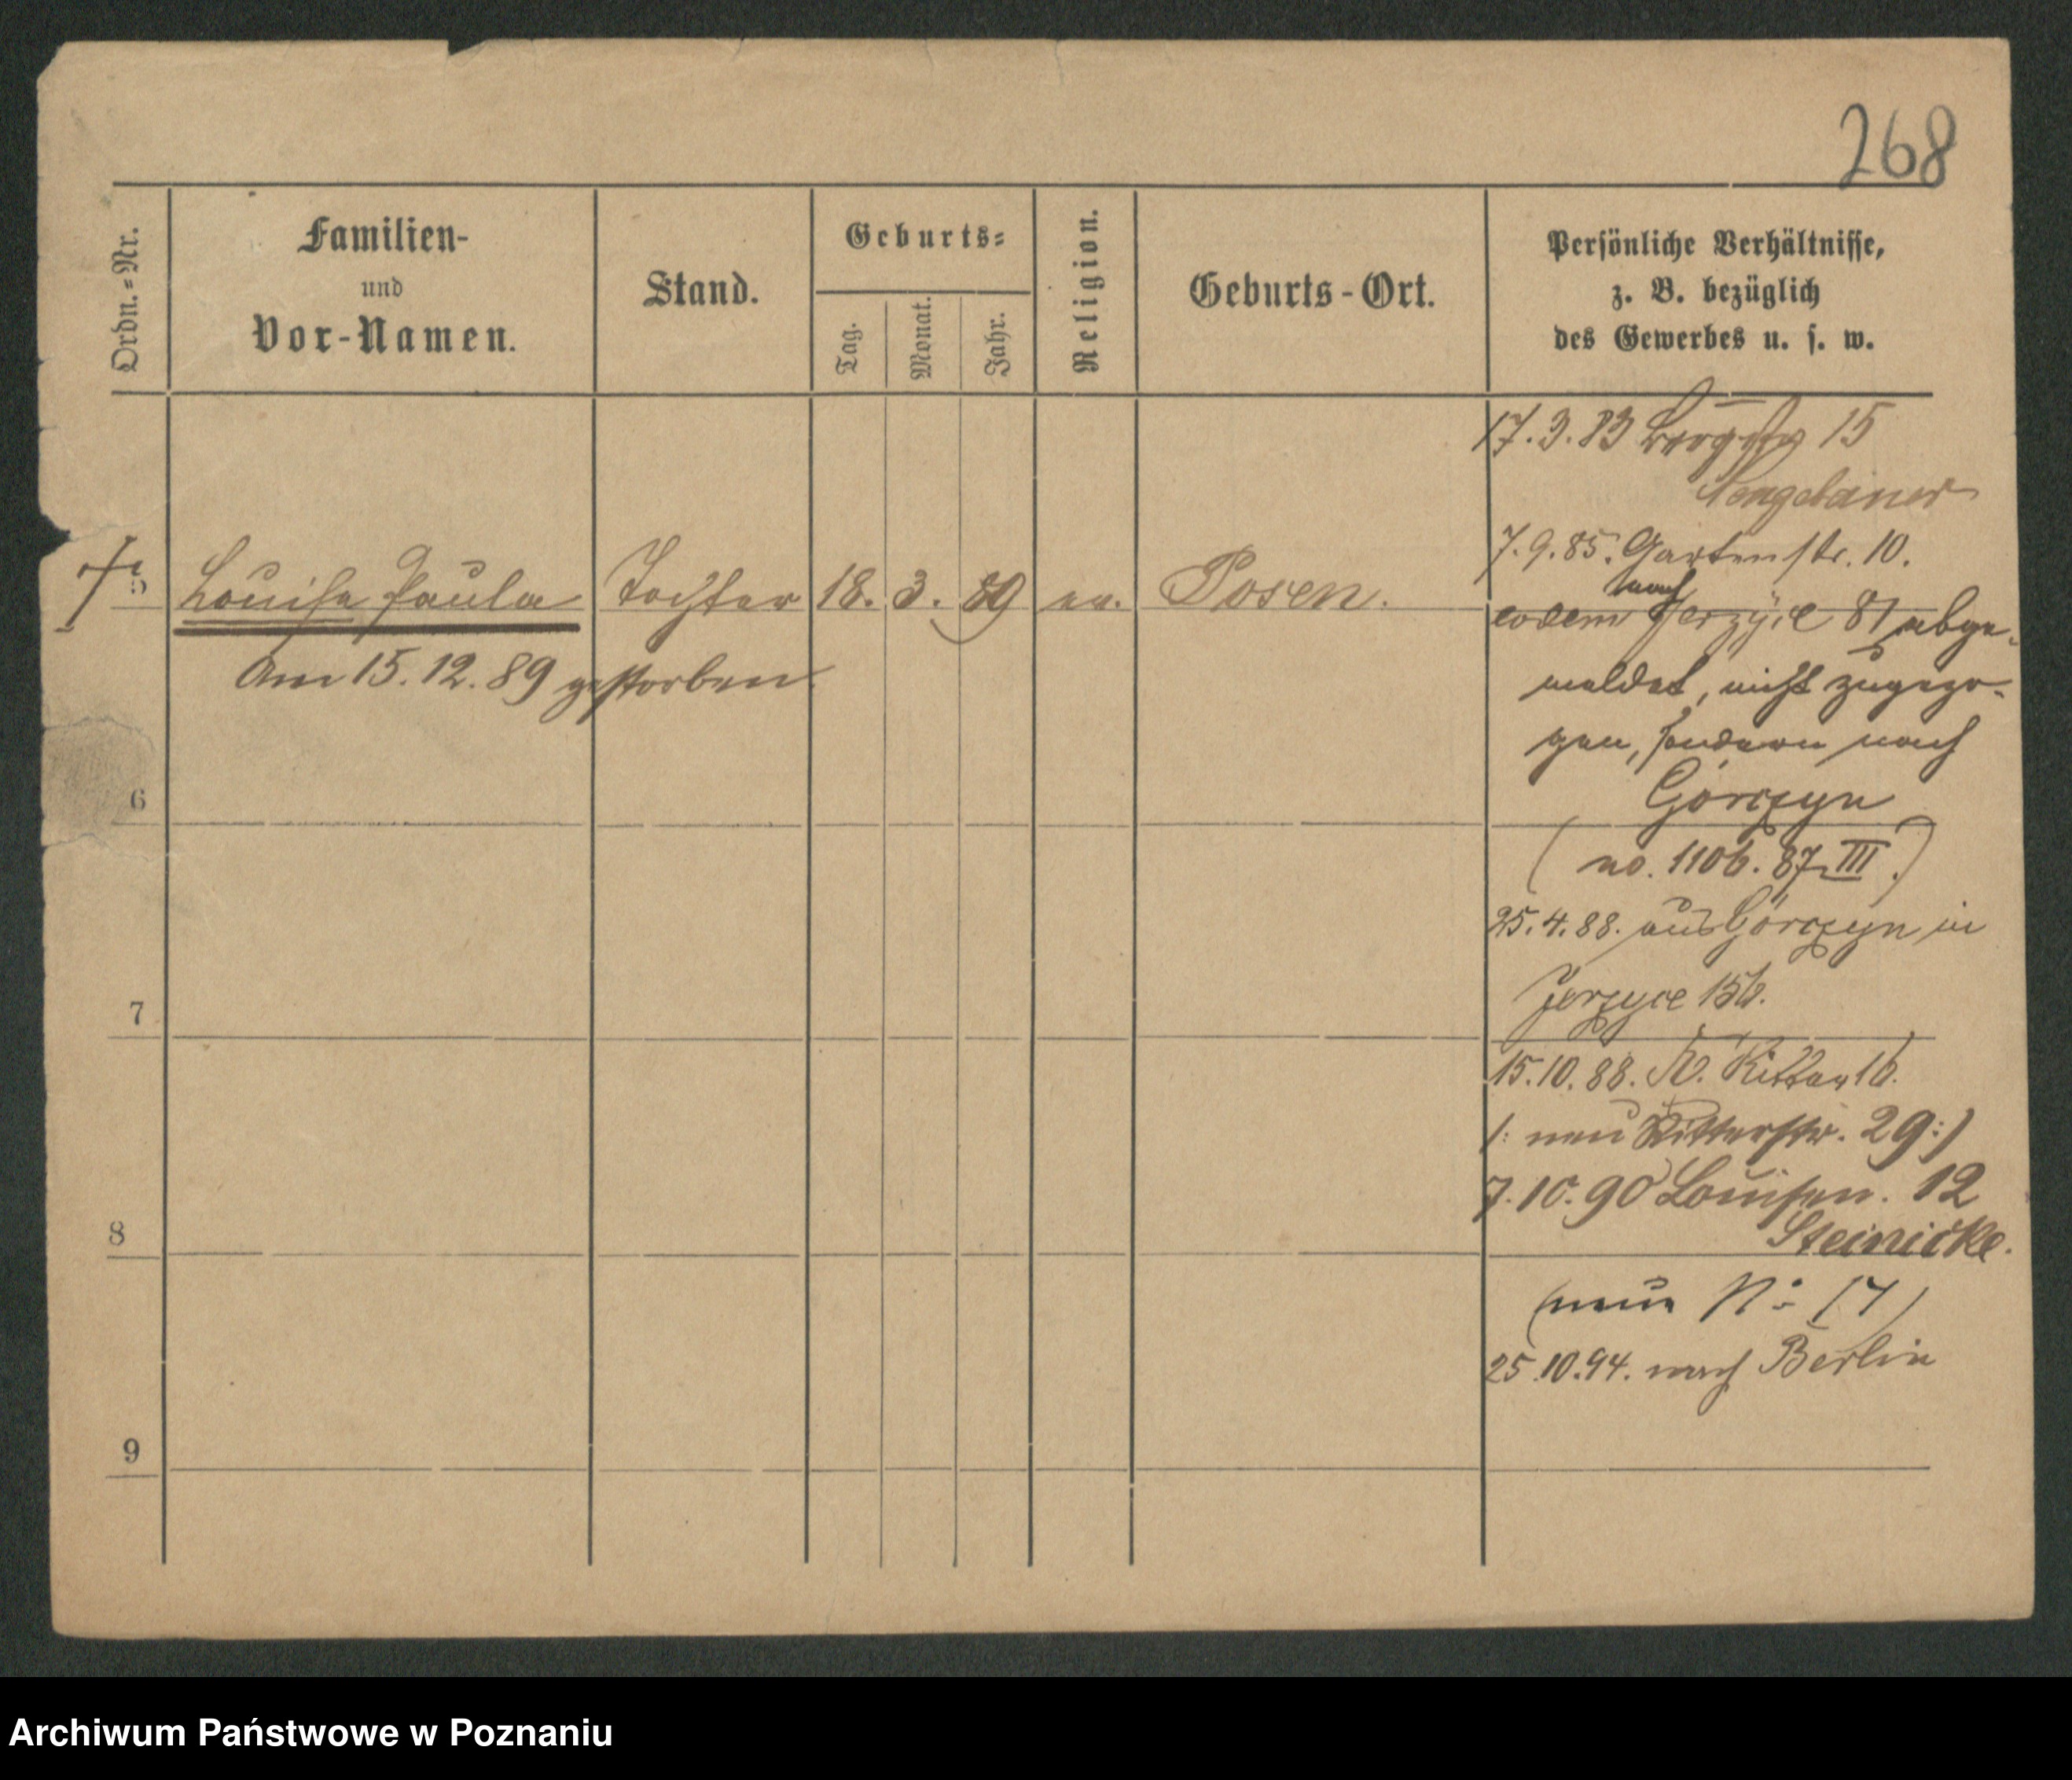 268
Ordn.-Nr.
Familien-
und
Vor-Namen.
Stand.
Geburts-
Tag.
Monat.
Jahr.
Religion.
Geburts-Ort.
Persönliche Verhältnisse,
z. B. bezüglich
des Gewerbes u. s. w.
17.3.83 15
7.9.85. Gartenstr. 10.
5 Louise Paula Tochter 18. 3. 89 ev. Posen.
nach
eodem Jerzyce 81 abge-
Am 15.12.89 gestorben.
meldet, nicht zugezo-
gen, sondern nach
Górczyn
6
(no. 1106. 87 III.)
25.4.88. aus Górczyn in
Jerzyce 156.
7
15.10.88. Ritter 16.
/: neu Ritterstr. 29:/
7.10.90 Louisen. 12
Steinicke.
8
(neue No 17)
25.10.94. nach Berlin
9
Archiwum Państwowe w Poznaniu